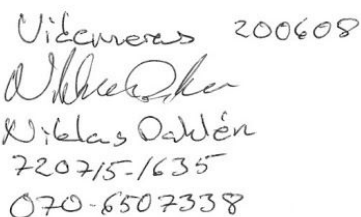 Vidimeras 200608
Niklas Dahlén
720715-1635
070-6507338